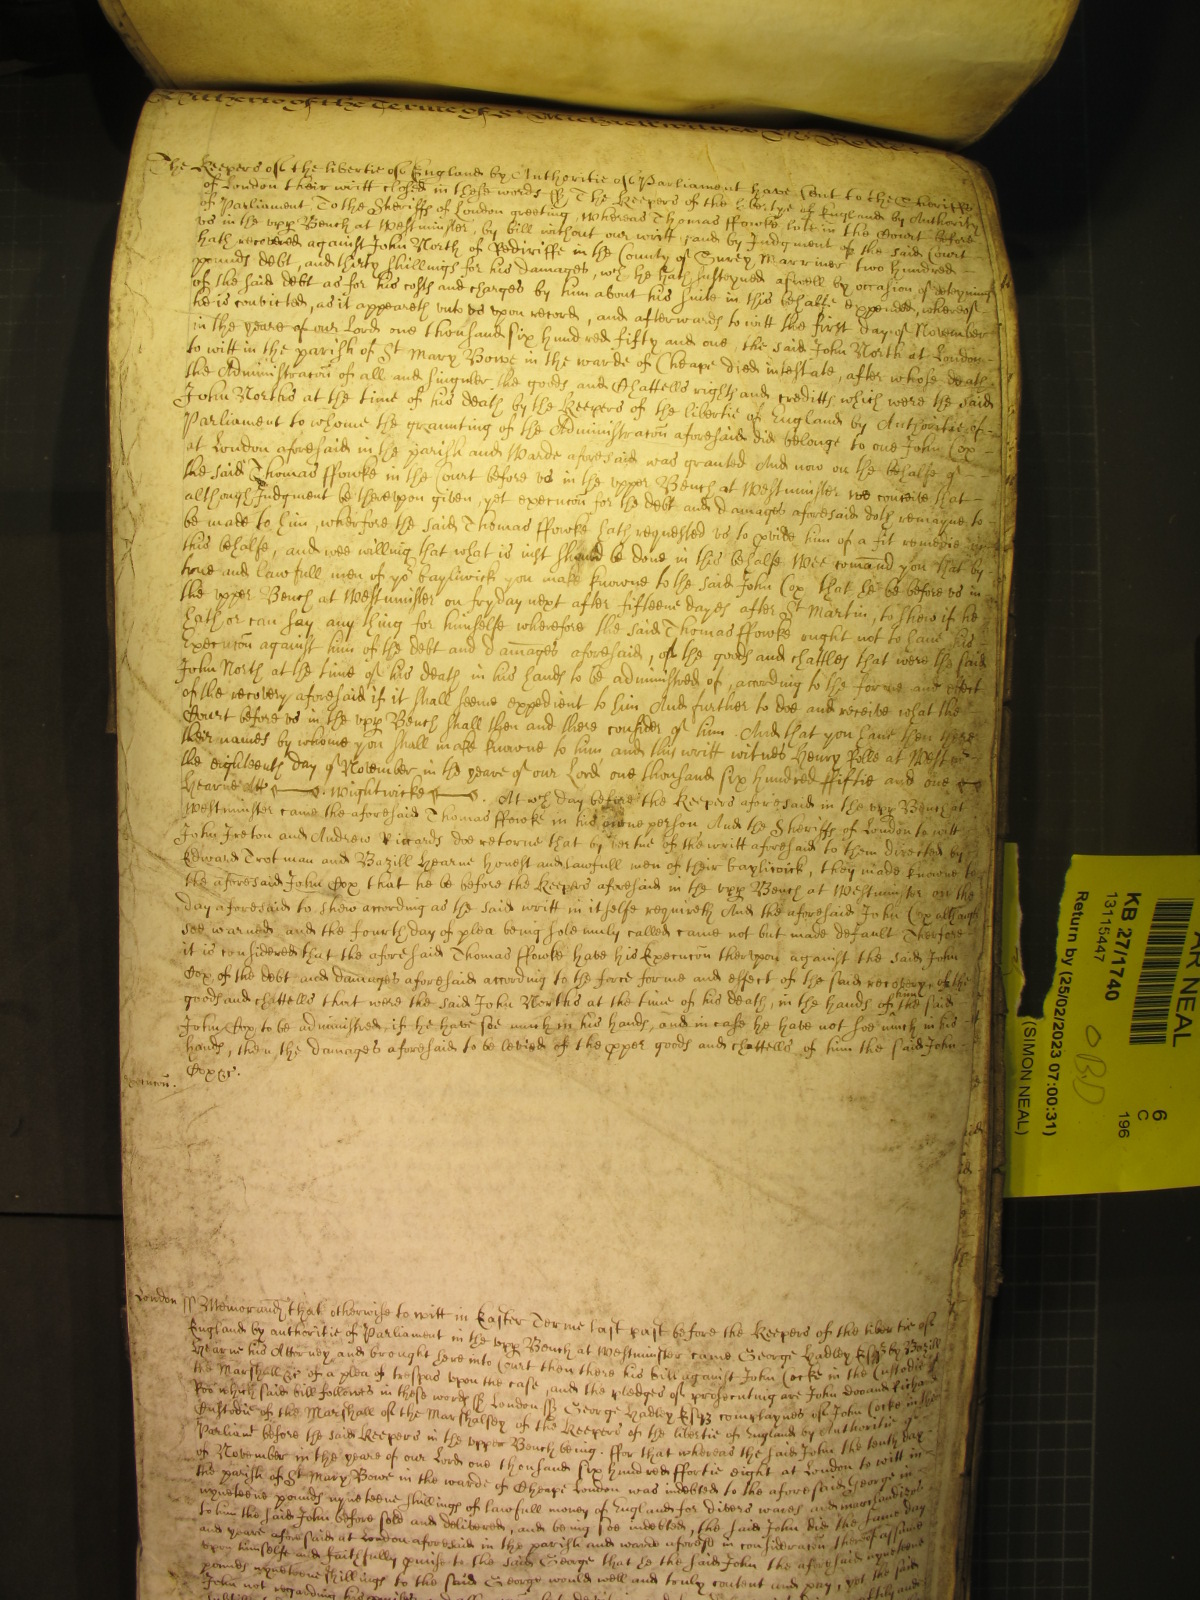 The Keepers of the libertie of England by Authoritie of Parliament have sent to the Sheriffs
of London their writt closed in these words ss The Keepers of the libertye of England by Authority
of Parliament To the Sheriffs of London greeting, Whereas Thomas ffowke late in the Court before
us in the upp Bench at Westminster, by bill without our writt, and by Judgment of the said Court
hath recovered against John North of Redriffe in the County of Surrey Marriner two hundred
pounds debt, and thirty shillings for his damages, wch he hath susteyned aswell by occasion of deteyning
of the said debt as for his costs and charges by him about his suite in this behalfe expended, whereof
he is convicted, as it appeareth unto us upon record, and afterwards to witt the first day of November
in the yeare of our Lord one thousand six hundred fifty and one, the said John North at London
to witt in the parish of St Mary Bowe in the warde of Cheape died intestate, after whose death
the Administracon of all and singuler the goods and Chattells rights and creditts which were the said
John Norths at the time of his death by the Keepers of the libertie of England by Authoritie of
Parliament to whome the graunting of the Administracon aforesaid did belonge to one John Cox
at London aforesaid in the parish and warde aforesaid was granted And now on the behalfe of
the said Thomas ffowke in the Court before us in the upper Bench at Westminster we conceive that
although Judgment be thereupon given, yet execucon for the debt and damages aforesaid doth remayne to
be made to him, wherfore the said Thomas ffowke hath requested us to pvide him of a fit remedie in
this behalfe, and wee willing that what is iust should be done in this behalfe Wee comand you that by
honest and lawfull men of yor bayliwick you make knowne to the said John Cox that he be before us in
the upper Bench at Westminster on fryday next after fifteene dayes after St Martin, to shew if he
hath or can say any thing for himselfe wherefore the said Thomas ffowke ought not to have his
Execucon against him of the debt and damages aforesaid, of the goods and chattles that were the said
John North at the time of his death in his hands to be administred of, according to the forme and effect
of the recovery aforesaid if it shall seeme expedient to him And further to doe and receive what the
Court before us in the upp Bench shall then and there consider of him. And that you have then there
their names by whome you shall make knowne to him, and this writt witnes Henry Rolle at Westmr
the eighteenth day of November in the yeare of our Lord one thousand six hundred ffiftie and one
Hearne Wightwicke. At wch day before the Keepers aforesaid in the upp Bench at
Westminster came the aforesaid Thomas ffowke in his owne person And the Sheriffs of London to witt
John Ireton and Andrew Riccards doe returne that by vertue of the writt aforesaid to them directed by
Edward Trotman and Bazill Hearne honest and lawfull men of their bayliwick, they made knowne to
the aforesaid John Cox that he be before the Keepers aforesaid in the upp Bench at Westminster on the
day aforesaid to shew according as the said writt in it selfe requireth And the aforesaid John Cox although
soe warned, and the fourth day of plea being solemnly called came not but made default Therfore
it is considered that the aforesaid Thomas ffowke have his Execucon therupon against the said John
Cox of the debt and damages aforesaid according to the force forme and effect of the said recovery, of the
goods and chattells that were the said John Norths at the time of his death, in the hands of him the said
John Cox to be administred, if he have soe much in his hands, and in case he have not soe much in his
hands, then the damages aforesaid to be levied of the pper goods and chattells of him the said John
Cox &c.
London ss Memorand that otherwise to witt in Easter Terme last past before the Keepers of the libertie of
England by authoritie of Parliament in the upp Bench at Westminster came George Hadley Esqr by Bazill
Hearne his Attorney and brought here into Court then there his bill against John Cocke in the Custodie of
the Marshall &c of a plea of trespas upon the case, and the pledges of prosecuting are John Doo and Richard
Roe which said bill followes in these words ss London ss George Hadley Esqr complaynes of John Cocke in the
Custodie of the Marshall of the Marshalsey of the Keepers of the libertie of England by Authoritie of
Parliamt before the said Keepers in the upper Bench being. ffor that whereas the said John the tenth day
of November in the yeare of our Lord one thousand six hundred ffortie eight at London to witt in
the parish of St Mary Bowe in the warde of Cheape London was indebted to the aforesaid George in
nyneteene pounds nyneteene shillings of lawfull money of England for divers wares and marchandizes
to him the said John before sold and delivered, and being soe indebted, the said John did the same day
and yeare aforesaid at London aforesaid in the parish and ward aforesd in consideracon therof assume
upon himselfe and faithfully pmise to the said George that he the said John the aforesaid nyneteene
pounds nyneteene shillings to the said George would well and truly content and pay, yet the said
John not regarding his
KB 27/1740
13115447
Return by (25/02/2023 07:00:31)
(SIMON NEAL)
AR NEAL
6
C
196